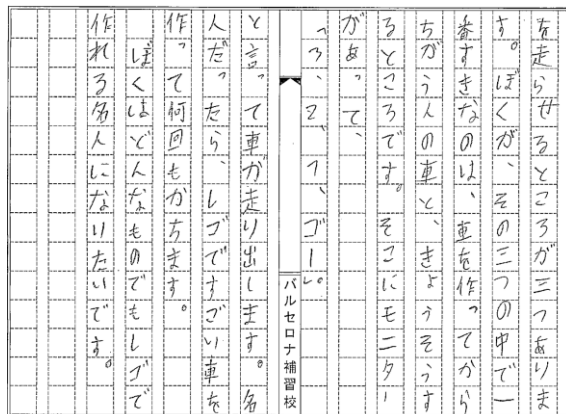 を走らせるところが三つありま
す。ぼくが、その三つの中で一
番すきなのは、車を作ってから
ちがう人の車と、きょうそうす
るところです。そこにモニター
があって、
「3、2、1、ゴー」。
バルセロナ補習校
と言って車が走り出します。名
人だったら、レゴですごい車を
作って何回もかちます。
ぼくはどんなものでもレゴで
作れる名人になりたいです。